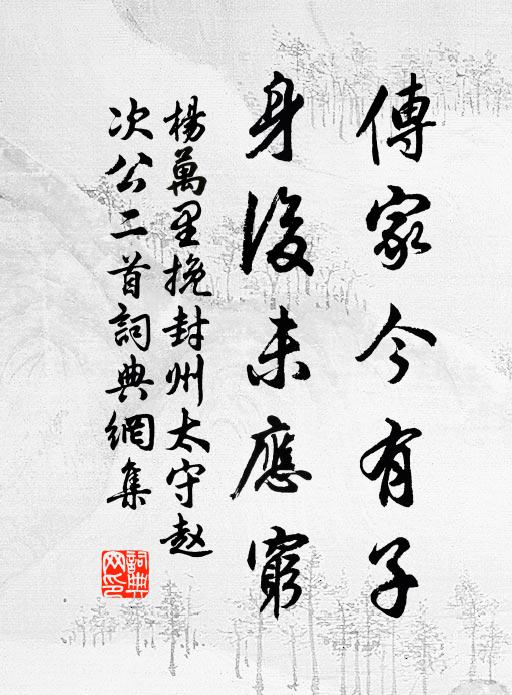 傳家今有子
身後未應窮
楊萬里挽封州太守赵
次公二首詞典網集
詞典
网印